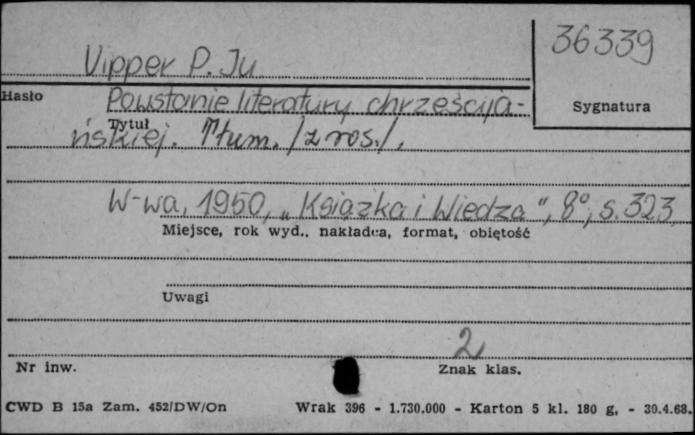 36339
Vipper P. Ju
Hasło
Sygnatura
Powstanie literatury chrześcija-
Tytuł
ńskiej. Tłum. /z ros./.
W-wa, 1950, „Książka i Wiedza", 8°, s. 323
Miejsce, rok wyd., nakładca, format, objętość
Uwagi
2
Nr inw.
Znak klas.
CWD B 15a Zam. 452/DW/On Wrak 396 - 1.730.000 - Karton 5 kl. 180 g. - 30.4.68.